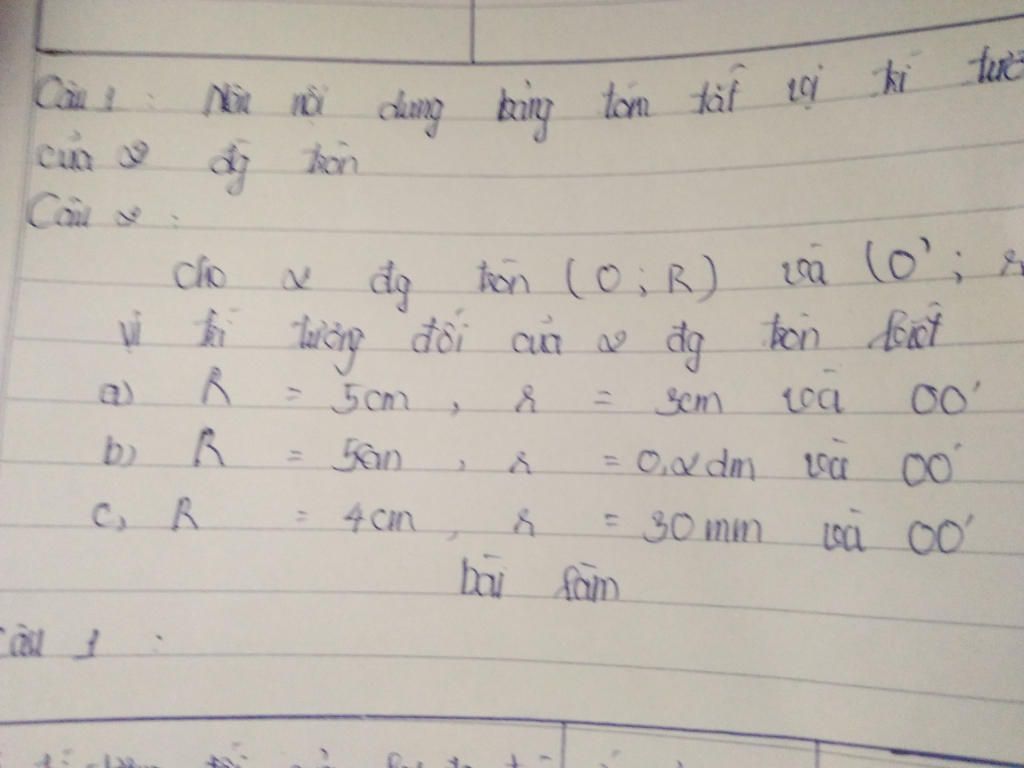 Câu 1 : Nêu nội dung bảng tóm tắt vị trí
của 2 đg tròn
Câu 2 :
Cho 2 đg tròn (O ; R) và (O' ;
vị trí tương đối của 2 đg tròn biết
a) R = 5cm , r = 3cm và OO'
b) R = 5cm , r = 0,2dm và OO'
c, R = 4cm , r = 30mm và OO'
bài làm
Câu 1 :